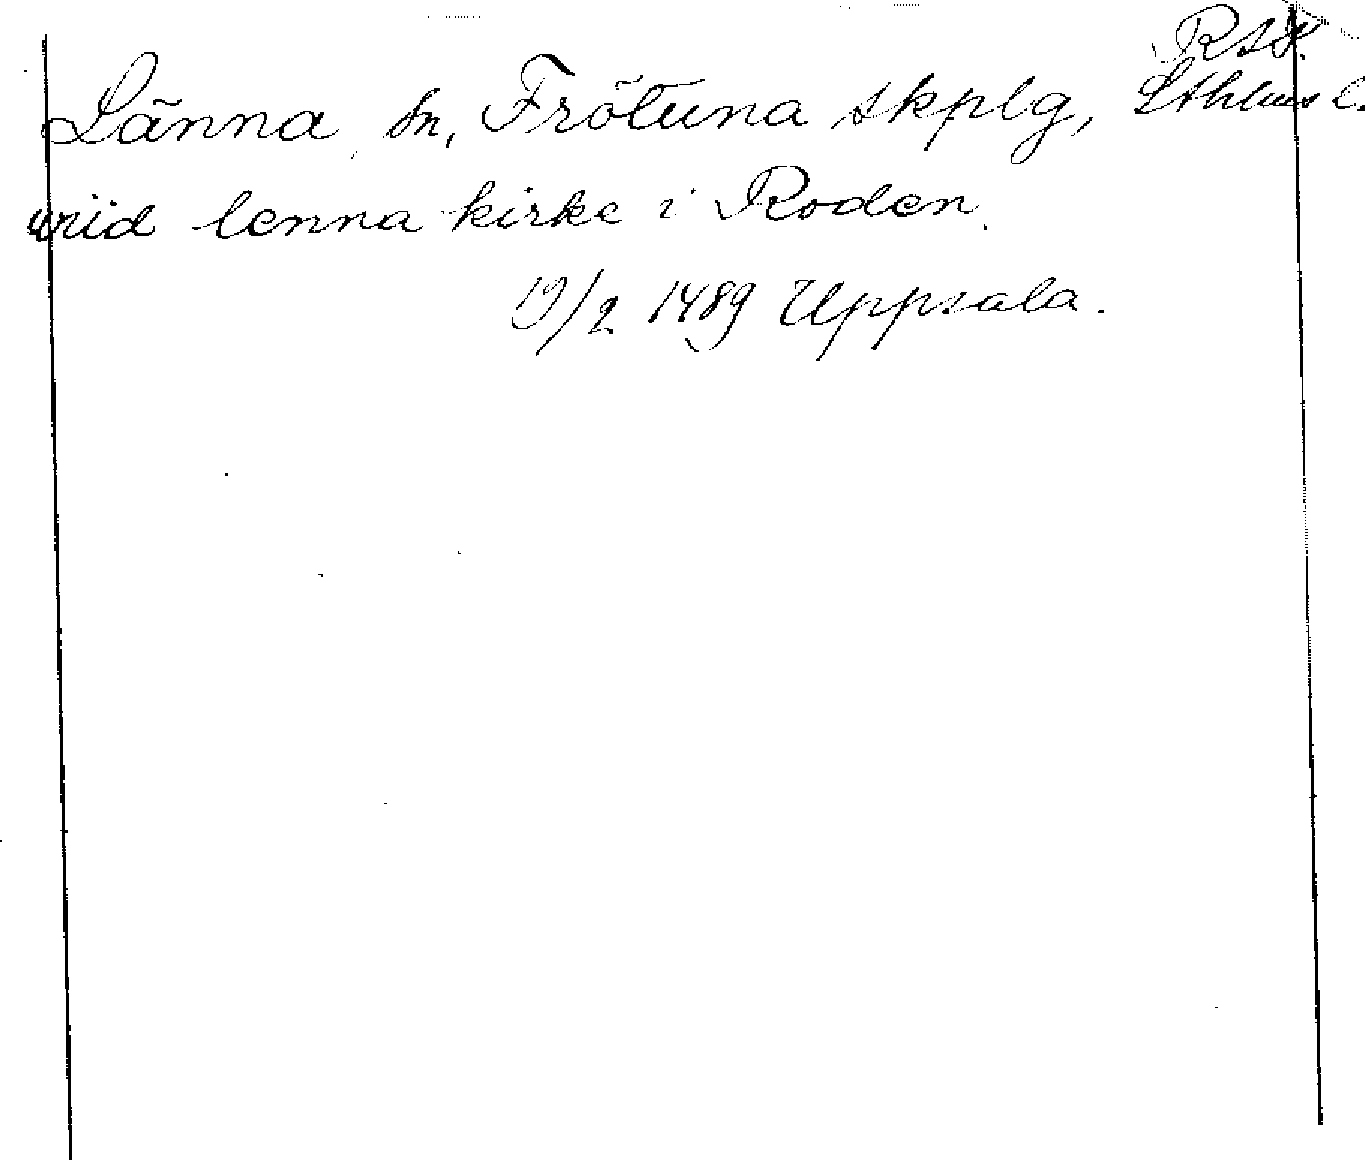 RA8.
Länna sn, Frötuna skplg, Sthlms l.
wiid lenna kirke i Roden.
19/2 1489 Uppsala.